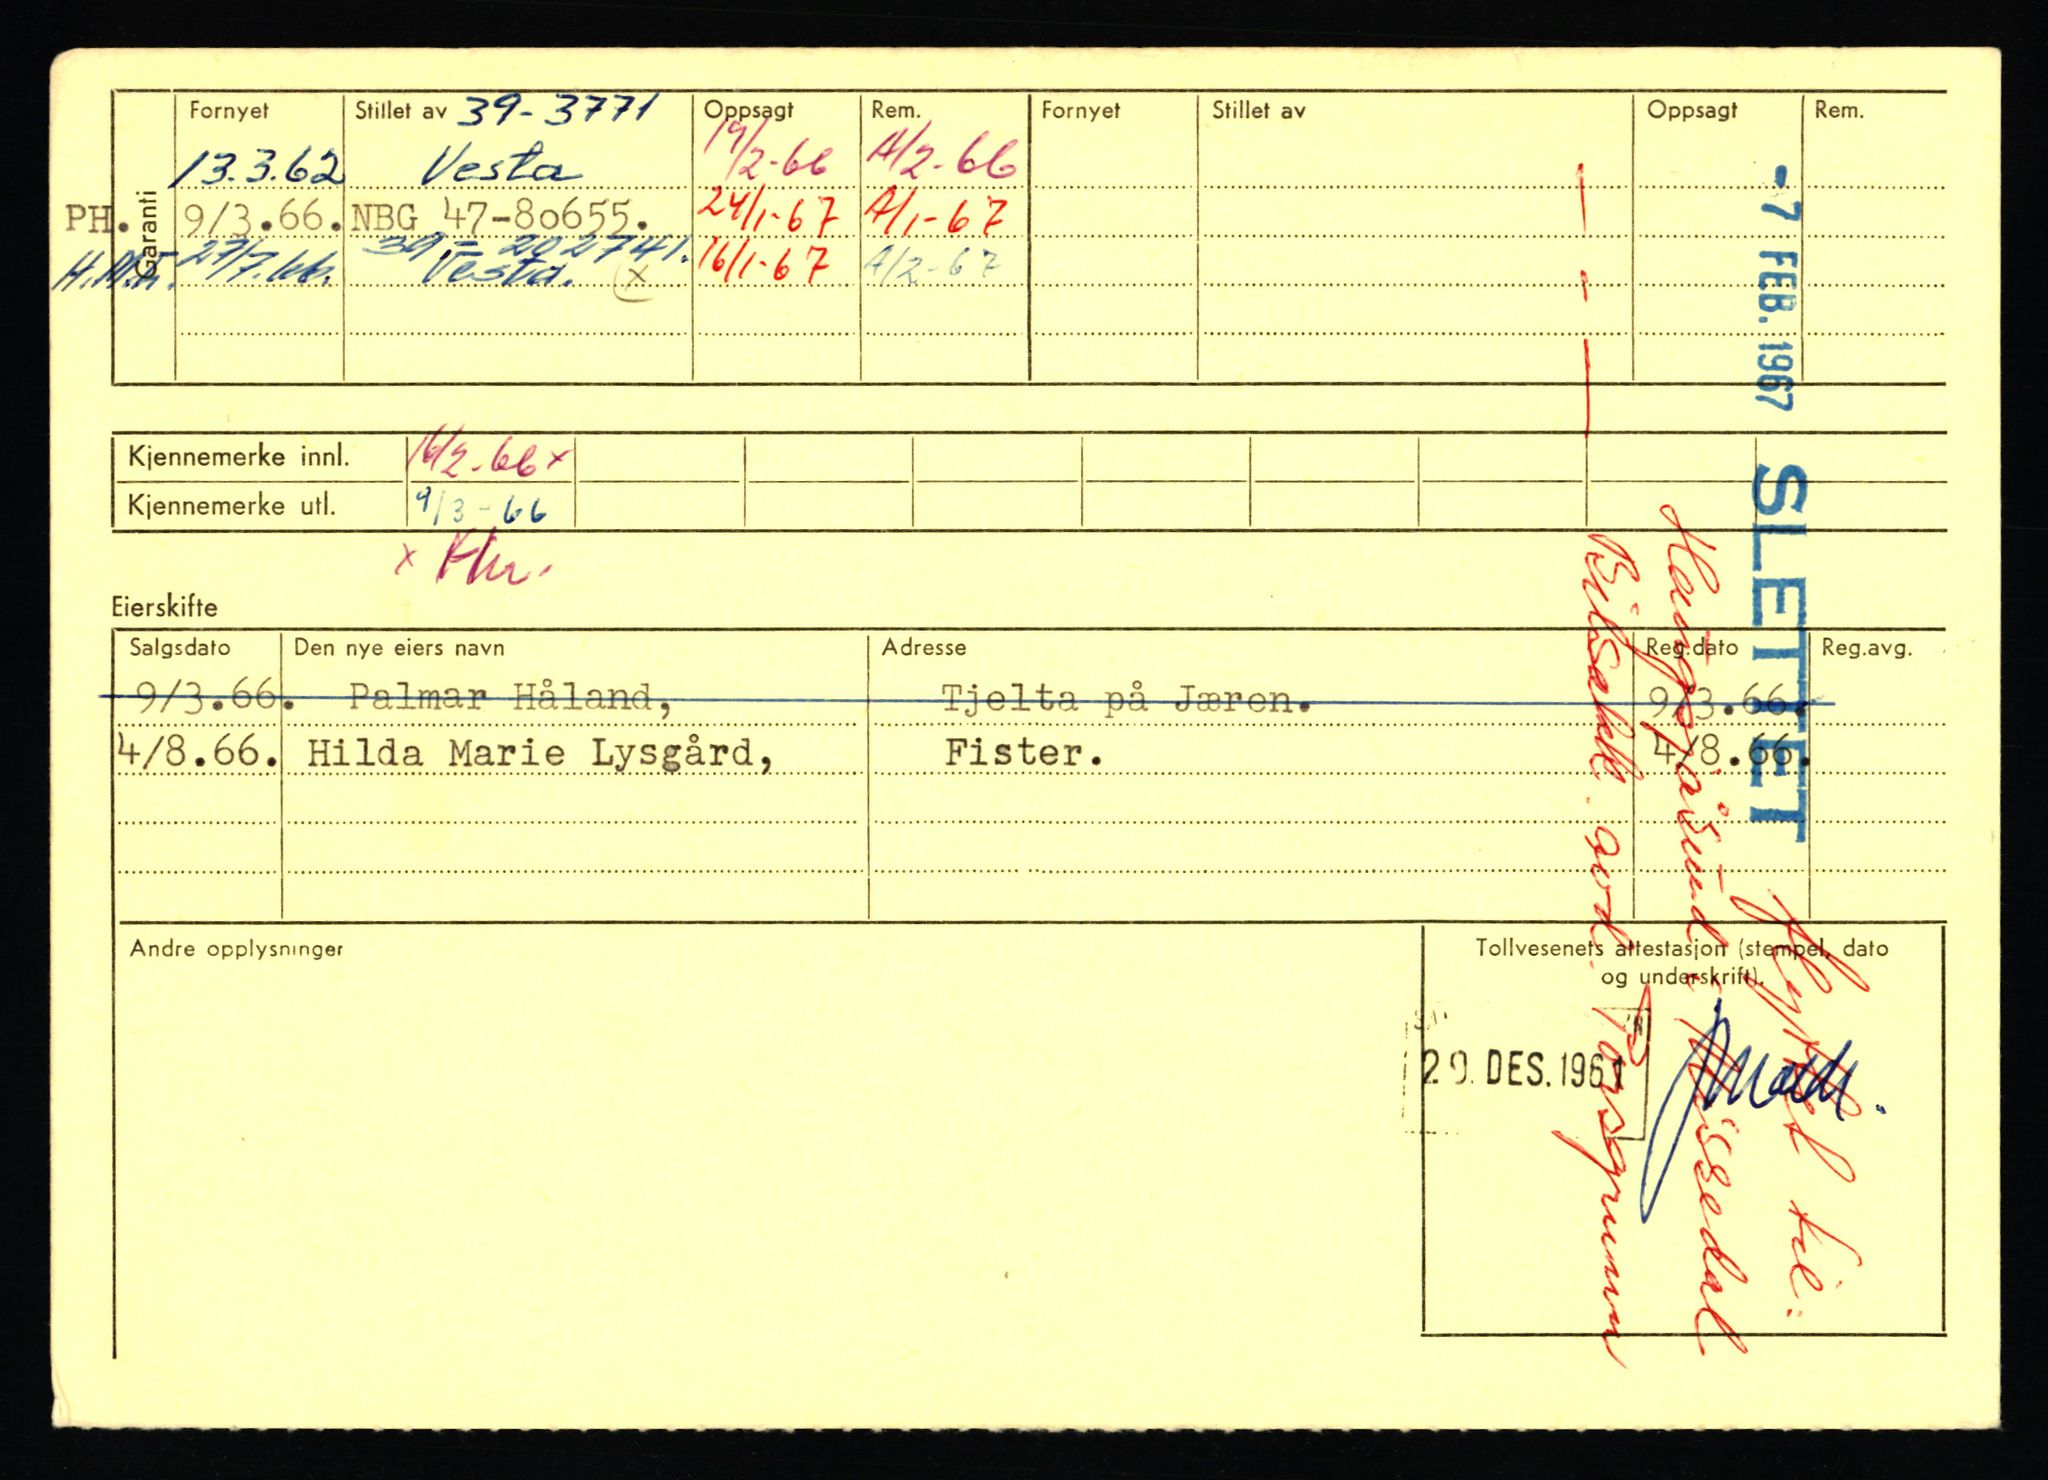 Fornyet Stillet av 39-3771 Oppsagt Rem. Fornyet Stillet av Oppsagt Rem.
Garanti
13.3.62 Vesta 19/2-66 A/2-66
PH. 9/3.66. NBG 47-80655. 24/1-67 A/1-67
27/7.66. 39-202741. Vesta. (x) 16/1-67 A/2-67
Kjennemerke innl. 16/2-66 x
Kjennemerke utl. 9/3-66
x
Eierskifte
Salgsdato Den nye eiers navn Adresse Reg.dato Reg.avg.
9/3.66. Palmar Håland, Tjelta på Jæren. 9/3.66.
4/8.66. Hilda Marie Lysgård, Fister. 4/8.66.
Andre opplysninger
Tollvesenets attestasjon (stempel, dato
og underskrift).
20. DES. 1961
-7 FEB. 1967 SLETTET
flyttet til:
Haugsjåsund i Nissedal
Bilsakk. avd. Porsgrunn